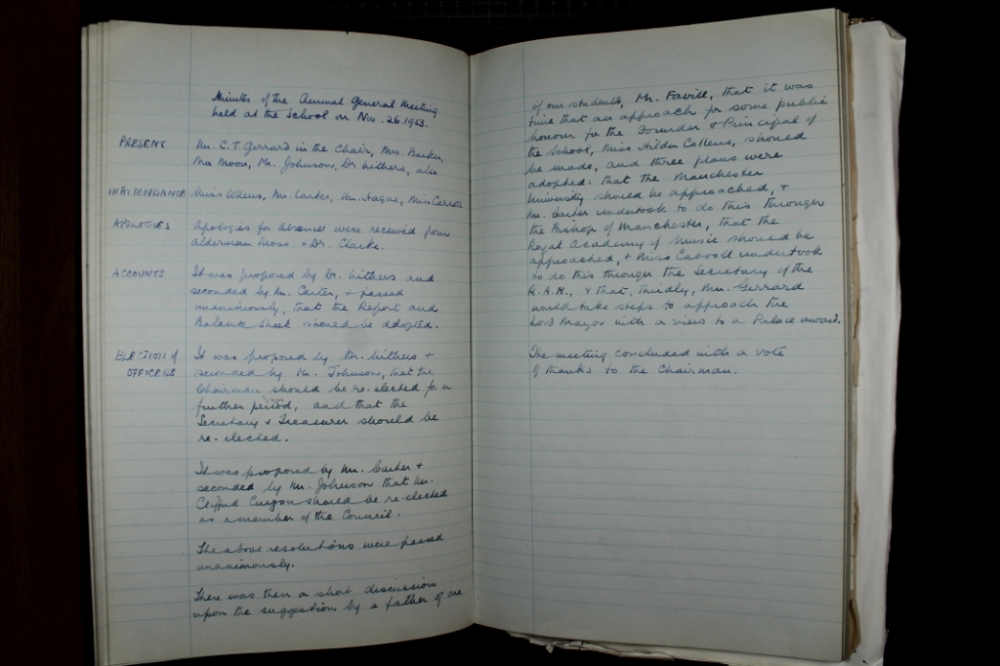 Minutes of the Annual General Meeting
held at the School on Nov. 26 1953.
PRESENT Mr. C.T. Gerrard in the Chair, Mrs. Barker,
Mrs Moon, Mr. Johnson, Dr Withers, also
IN ATTENDANCE Miss Collens, Mr. Carter, Mr. Hague, Miss Carroll
APOLOGIES Apologies for absence were received from
Alderman Moss & Dr. Clarke.
ACCOUNTS It was proposed by Dr. Withers and
seconded by Mr. Carter, & passed
unanimously, that the Report and
Balance Sheet should be adopted.
ELECTION of It was proposed by Dr. Withers &
OFFICERS seconded by Mr. Johnson, that the
Chairman should be re-elected for a
further period, and that the
Secretary & Treasurer should be
re-elected.
It was proposed by Mr. Carter &
seconded by Mr. Johnson that Mr.
Clifford Curzon should be re-elected
as a member of the Council.
The above resolutions were passed
unanimously.
There was then a short discussion
upon the suggestion by a father of one
of our students, Mr. Favill, that it was
time that an approach for some public
honour for the Founder & Principal of
the School, Miss Hilda Collens, should
be made, and three plans were
adopted: that the Manchester
University should be approached, &
Mr. Carter undertook to do this through
the Bishop of Manchester, that the
Royal Academy of Music should be
approached, & Miss Carroll undertook
to do this through the Secretary of the
R.A.M., & that, thirdly, Mr. Gerrard
would take steps to approach the
Lord Mayor with a view to a Palace award.
The meeting concluded with a vote
of thanks to the Chairman.